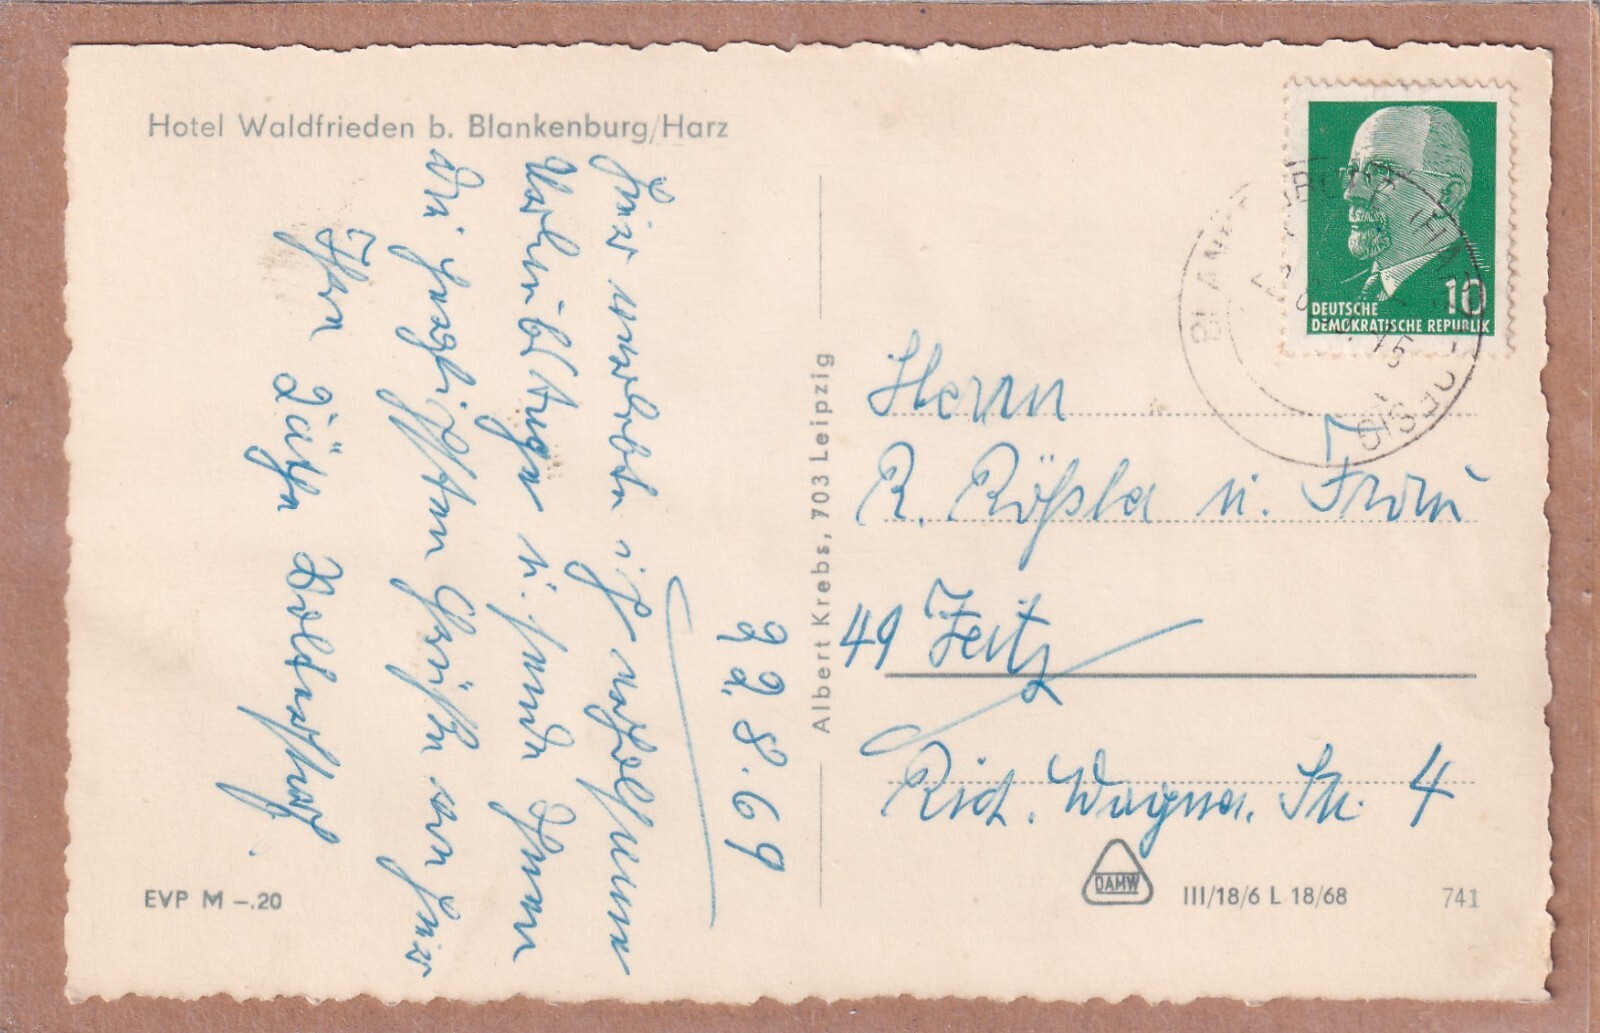 Hotel Waldfrieden b. Blankenburg/Harz
22.8.69
Hier verlebte ich erholsame
Urlaubstage u. sende Ihnen
die herzlichsten Grüße von hier
Ihre Käthe
EVP M -.20
Albert Krebs, 703 Leipzig
DEUTSCHE
DEMOKRATISCHE REPUBLIK
10
Herrn
R. Rößler u. Frau
49 Zeitz
Rich. Wagner. Str. 4
DAMW
III/18/6 L 18/68
741